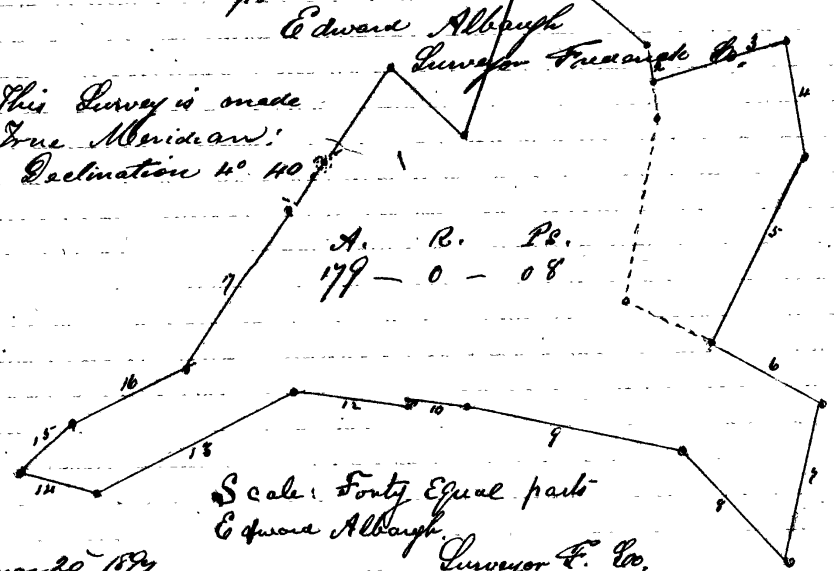 Edward Albaugh
Surveyor Frederick Co.
This Survey is made
True Meridian:
Declination 4° 40
A. R. Ps.
179 — 0 — 08
1
2
3
4
5
6
7
8
9
10
12
13
14
15
16
17
Scale: Forty Equal parts
Edward Albaugh.
Surveyor F. Co.